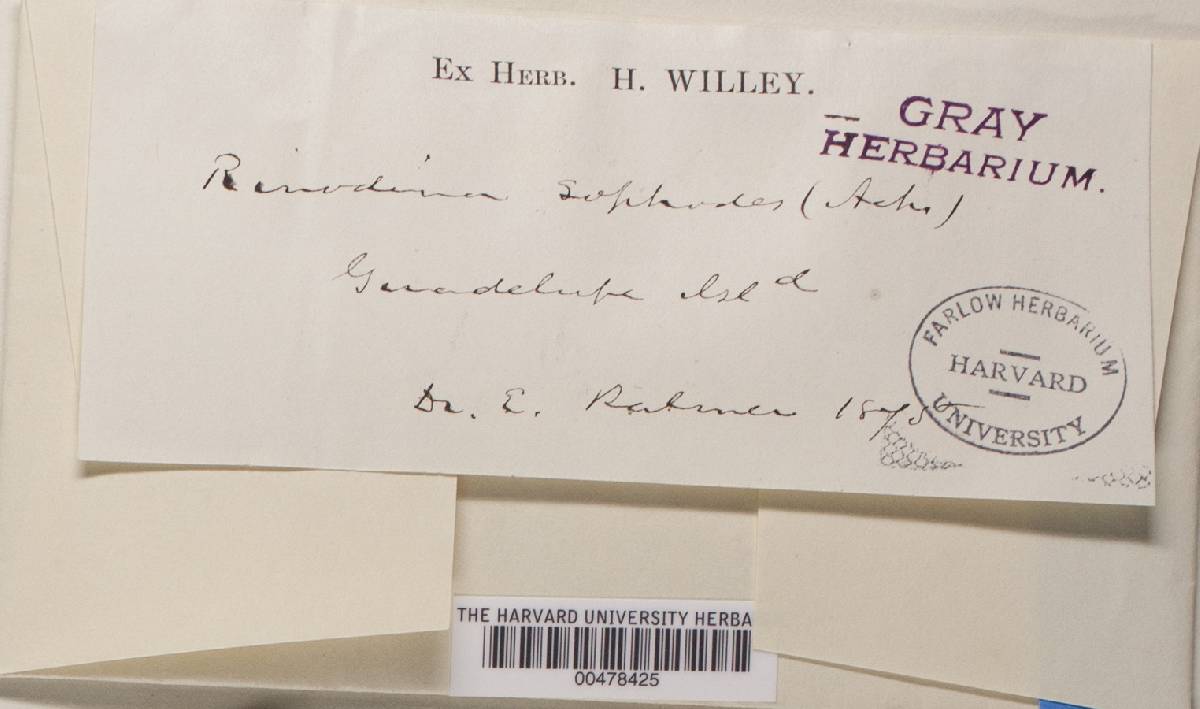 Ex Herb. H. WILLEY.
GRAY
HERBARIUM.
Rinodina sophodes (Ach)
Guadelupe Isld
FARLOW HERBARIUM
HARVARD
UNIVERSITY
Dr. E. Palmer 1875
THE HARVARD UNIVERSITY HERBA
00478425